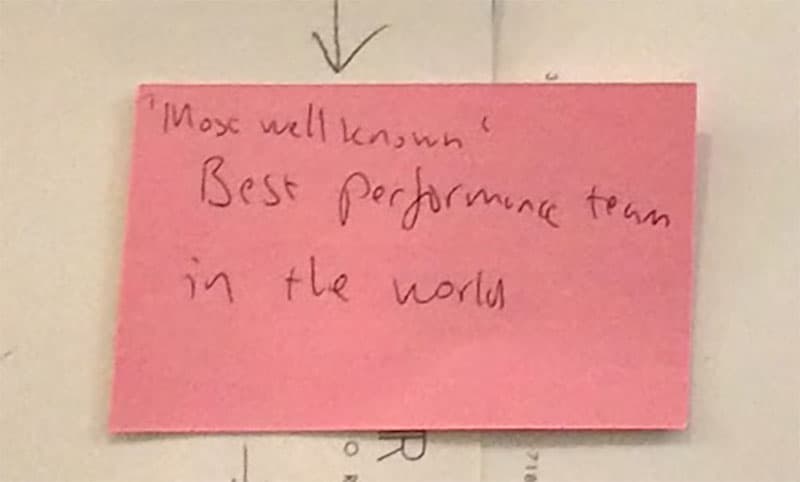 'Most well known'
Best performance team
in the world
R
O R
710